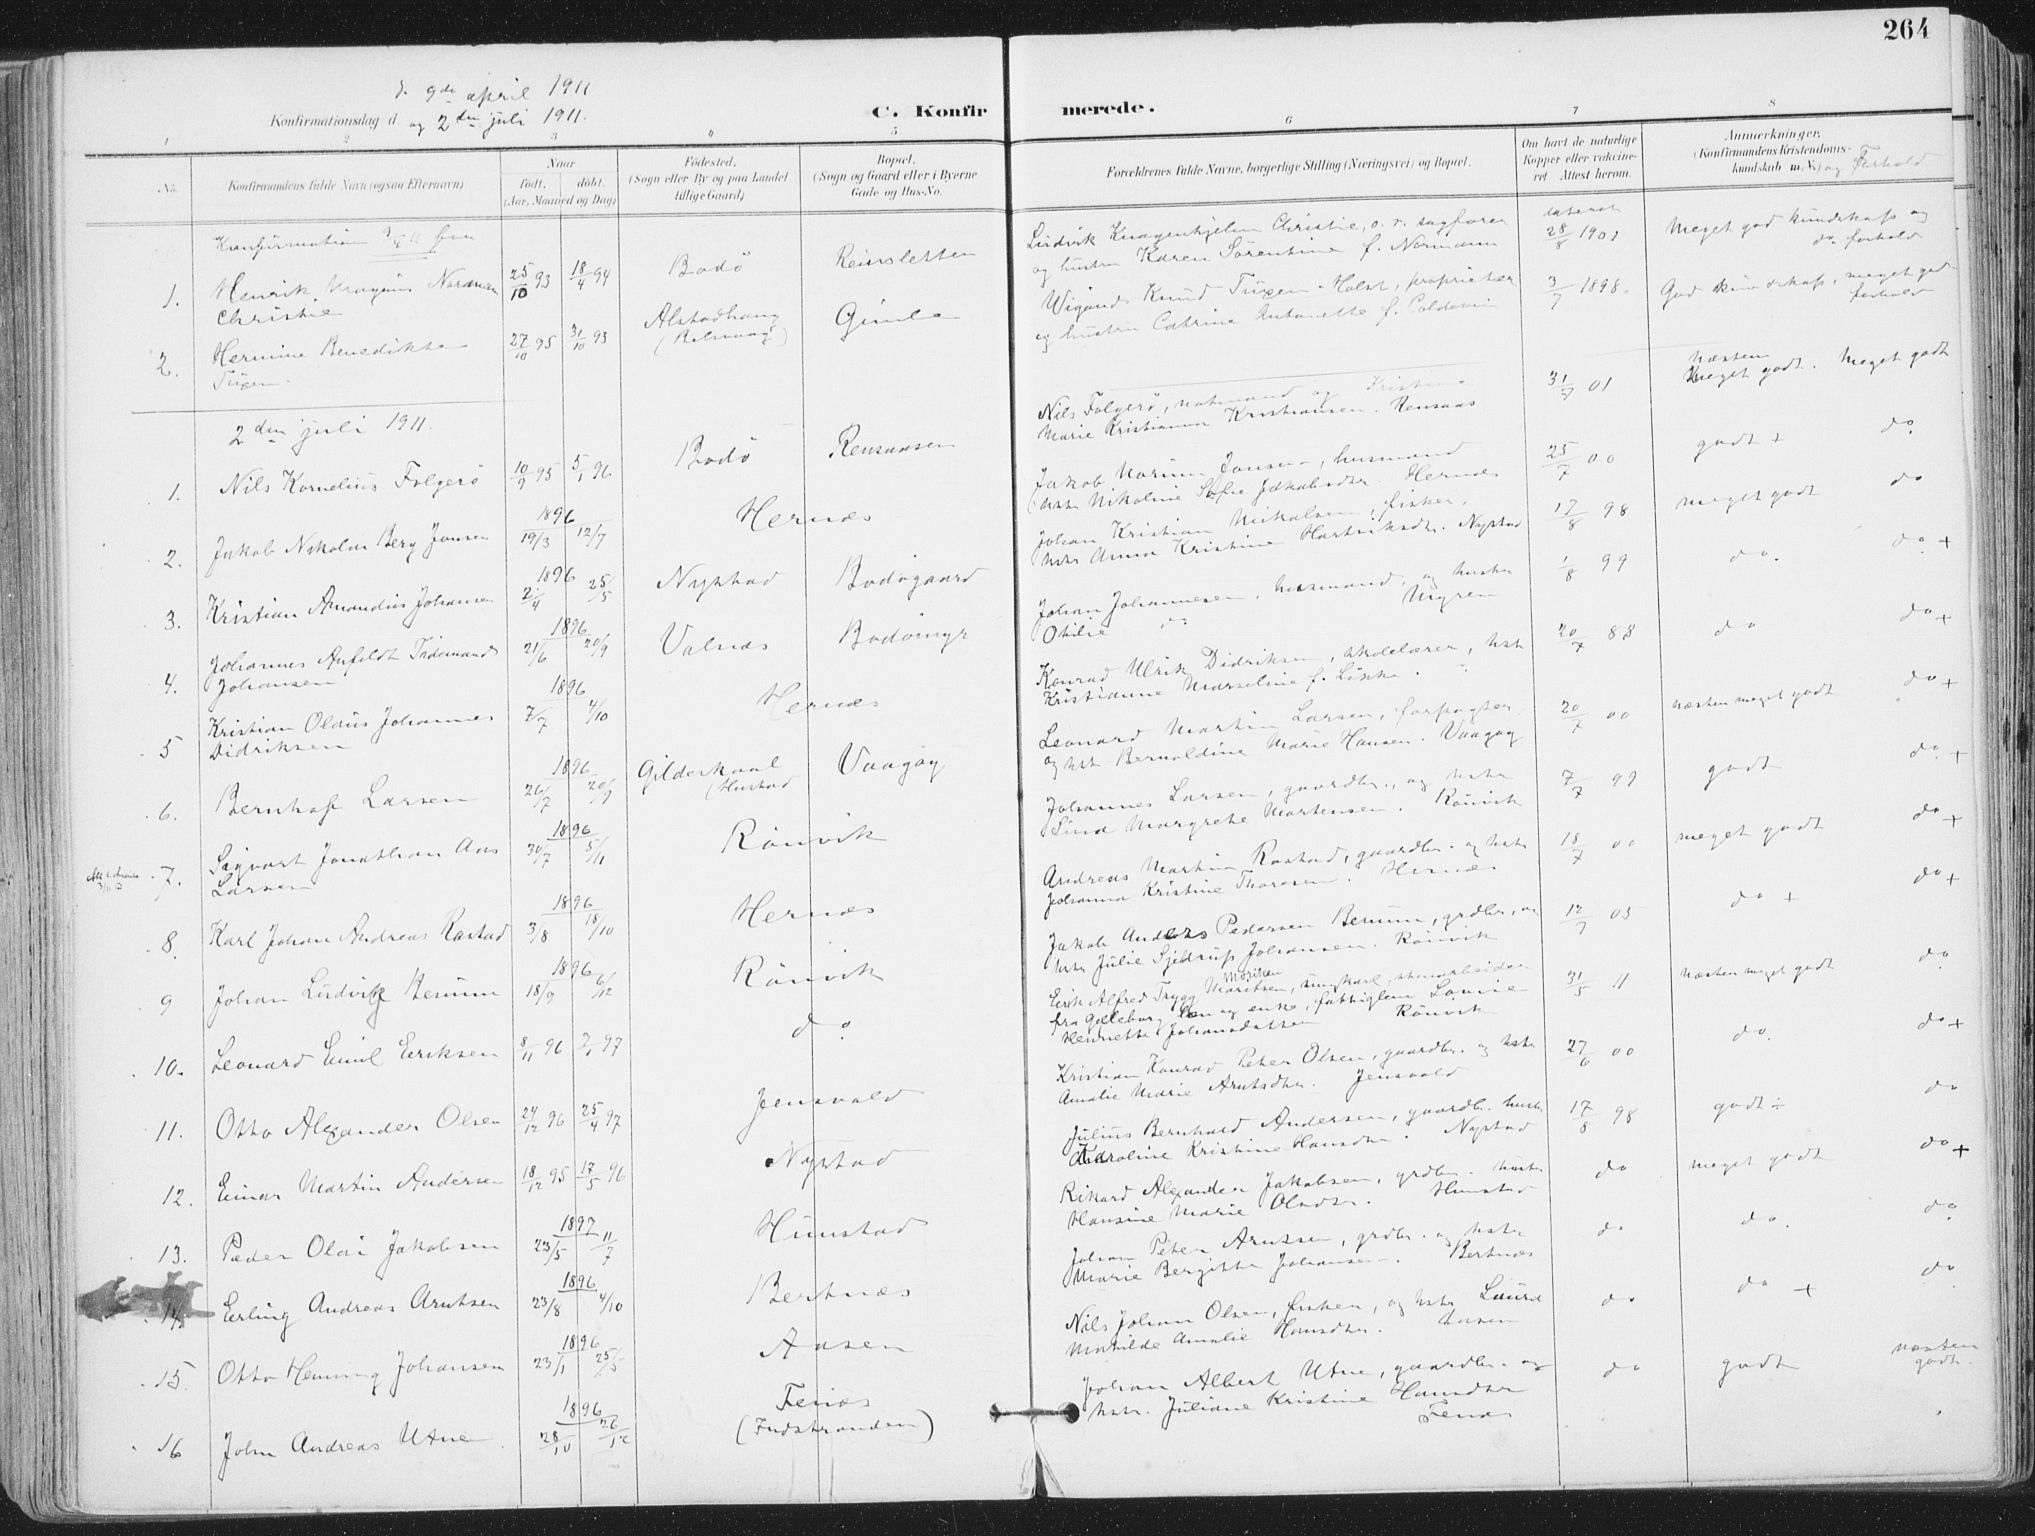 264
d. 9de april 1911
Konfirmationsdag d. og 2den juli 1911.
C. Konfirmerede.
1 2 3 4 5 6 7 8
No.
Konfirmandens fulde Navn (ogsaa Efternavn)
Naar
født. døbt.
(Aar, Maaned og Dag)
Fødested.
(Sogn eller By og paa Landet
tillige Gaard)
Bopæl.
(Sogn og Gaard eller i Byerne
Gade og Hus-No.
Forældrenes fulde Navne, borgerlige Stilling (Næringsvei) og Bopæl.
Om havt de naturlige
Kopper eller vakcine-
ret Attest herom.
Anmærkninger.
(Konfirmandens Kristendoms-
kundskab m.v.) og Forhold
Konfirmation 9/4 11
1. Henrik Magnus Norman Christie 25/10 93 18/4 94 Bodö Reinsletten
Ludvik Knagenhjelm Christie, o. r. sagförer
og hustru Karen Sörentine f. Normann
dateret 28/8 1901
Meget god kundskab og do forhold
2. Hermine Benedikte Tuxen. 27/10 95 31/10 93 Alstadhaug Gimle
Wigand Knud Tuxen-Holst, proprietær
og hustru Catrine Antonette f. Coldevin
3/7 1898.
God kundskab, meget godt forhold
2den juli 1911.
1. Nils Kornelius Folgerö 10/9 95 5/1 96 Bodö Rensaasen
Nils Folgerö, notmand og Kristine
Marie Kristianna Kristiansen. Rensaas
31/7 01
næsten meget godt. Meget godt
2. Jakob Nikolai Berg Jansen 1896 19/3 12/7 Hernæs
Jakob Marius Jansen, husmand
hstr Nikoline Sofie Jakobsdtr. Hernæs
25/7 00 godt + do
3. Kristian Amandus Johansen 1896 2/4 25/5 Nystad Bodögaard
Johan Kristian Mikalsen, fisker,
hstr Anna Kristine Hartviksdtr. Nystad
17/8 98 meget godt do
4. Johannes Anfeldt Tidemand Johansen 1896 21/6 20/9 Valnæs Bodömyr
Johan Johannesen, husmand, og hustru
Otilie do Myren
1/8 99 do. do +
5 Kristian Olaus Johannes Didriksen 1896 7/7 4/10 Hernæs
Konrad Ulrik Didriksen, skolelærer, hstr
Kristianne Marseline f. Likke.
20/7 88 do do +
6. Bernhof Larsen 1896 26/7 20/9 Gilderskaal (Hustad Vaagöy
Leonard Martin Larsen, forpagter,
og hstr Bernoldine Marie Hansen. Vaagöy
20/7 00 næsten meget godt do +
7. Sigvart Jonathan Aas Larsen 1896 30/7 5/11 Rönvik
Johannes Larsen, gaardbr., og hstr
Lina Margrete Mortensen. Rönvik
7/7 99 godt do. +
8. Karl Johan Andreas Rastad 1896 3/8 18/10 Hernæs
Andreas Martin Rastad, gaardbr. og hstr
Johanna Kristine Thoresen. Hernæs
18/7 00 meget godt do +
9 Johan Ludvig Benum 1896 18/9 6/12 Rönvik
Jakob Anders Pedersen Benum, grdbr, og
hstr Julie Sjeldrup Johansen. Rönvik
12/7 05 do + do +
10. Leonard Emil Eriksen 8/11 96 2/1 97 do
Erik Alfred Trygg Moritsen, ungkarl, stenarbeider
fra Göteborg len og enke, fattiglem Lovise
Henriette Johansdatter Rönvik
31/5 11 næsten meget godt do
11. Otto Alexander Olsen 24/12 96 25/4 97 Jensvold
Kristian Konrad Peter Olsen, gaardbr. og hstr
Amalie Marie Arntsdtr. Jensvold
27/6 00 do. do +
12. Einar Martin Andersen 18/12 95 17/5 96 Nystad
Julius Bernhard Andersen, gaardb. hustr
Karoline Kristine Hansdtr. Nystad
17/8 98 godt ÷ do
13. Peder Olai Jakobsen 1897 23/5 11/7 Hunstad
Rikard Alexander Jakobsen, grdbr. hustr
Hansine Marie Olsdtr. Hunstad
do meget godt do +
14 Erling Andreas Arntsen 1896 23/8 4/10 Bertnæs
Johan Peter Arntsen, grdbr. og hstr
Marie Bergitte Johansen. Bertnæs
do do. do
15. Otto Henning Johansen 1896 23/1 25/5 Aasen
Nils Johan Olsen, fisker, og hstr Laura
Mathilde Amalie Hansdtr. Aasen
do do + do
16 John Andreas Utne 1896 28/10 26/12 Fenes (Indstranden)
Johan Albert Utne, gaardbr. og
hstr. Juliane Kristine Hansdtr
Fenes
do godt næsten godt.